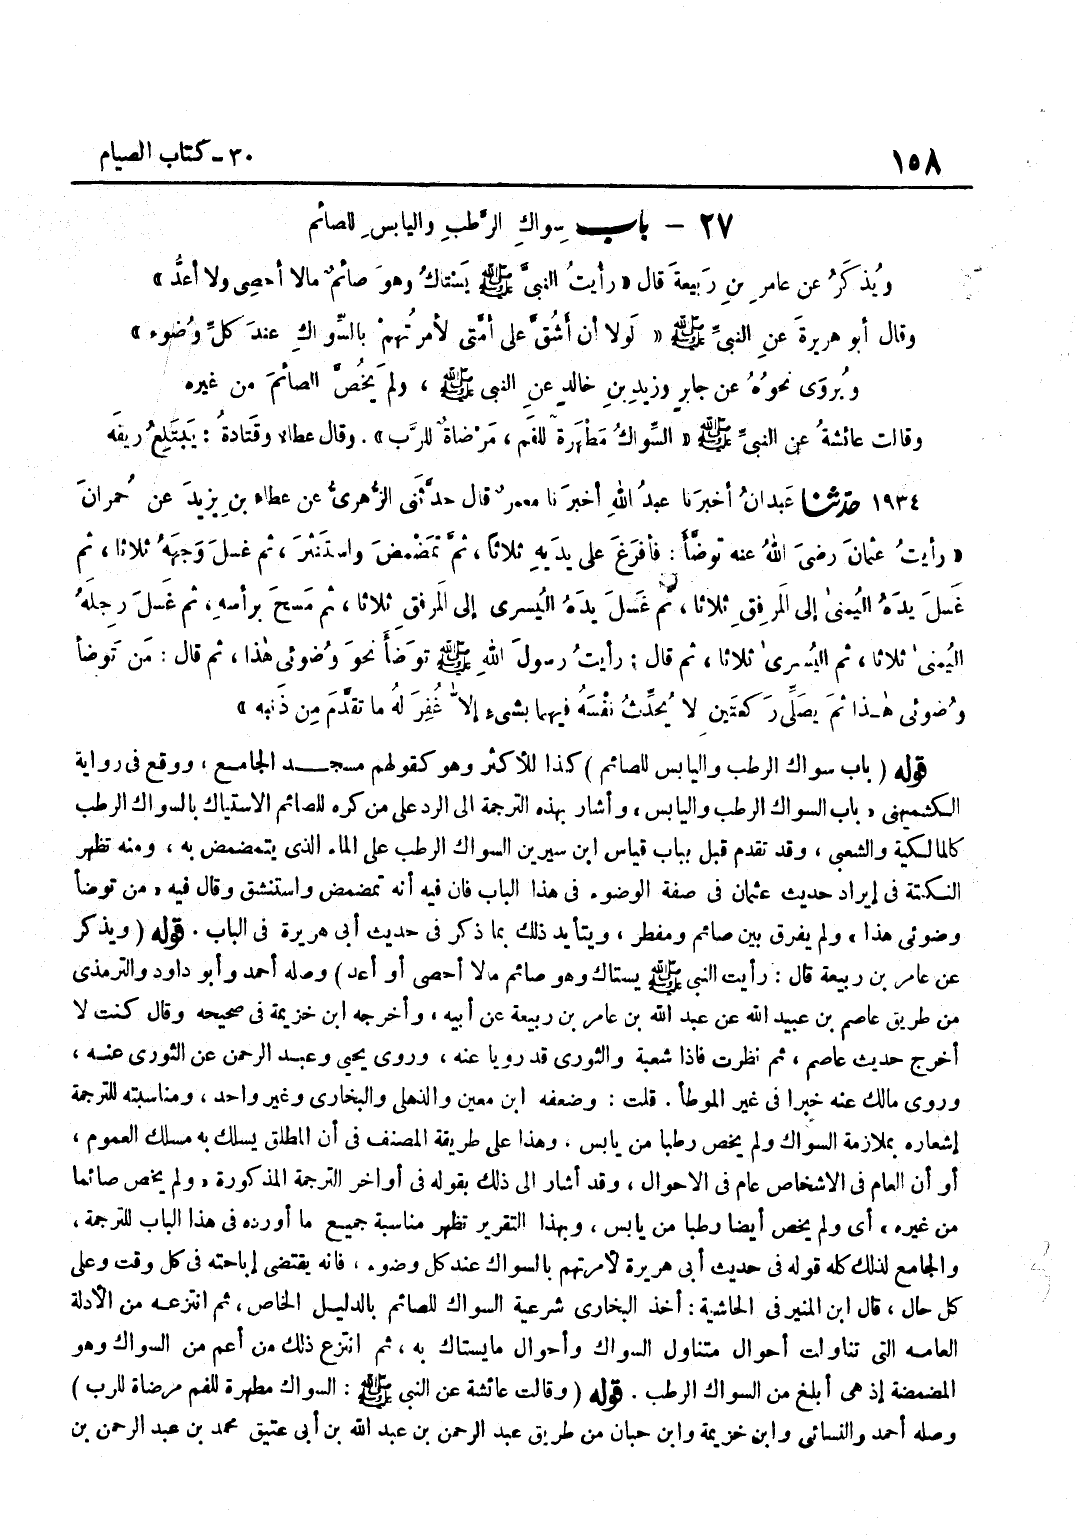 ١٥٨
٣٠ - كتاب الصيام
٢٧ - باب سِواكِ الرَّطبِ واليابسِ للصائم
ويُذكَرُ عن عامرِ بنِ رَبيعةَ قال « رأيتُ النبيَّ ﷺ يَسْتاكُ وهوَ صائمٌ مالا أحصِى ولا أعدُّ »
وقال أبو هريرةَ عنِ النبيِّ ﷺ « لَولا أن أَشُقَّ على أمَّتى لأمرتُهمْ بالسِّواكِ عندَ كلِّ وُضوء »
ويُروَى نحوُهُ عن جابرٍ وزيدِ بنِ خالدٍ عنِ النبى ﷺ ، ولم يَخُصَّ الصائمَ من غيره
وقالت عائشةُ عنِ النبىِّ ﷺ « السِّواكُ مَطْهَرَة للفَم ، مَرْضاةٌ للرَّب » . وقال عطاء وقَتادةُ : يَبْتَلِعُ ريقَه
١٩٣٤ حدثنا عَبدانُ أخبرَنا عبدُ اللهِ أخبرَنا معمرٌ قال حدَّثَنى الزُّهرىُّ عن عطاء بنِ يزيدَ عن حُمرانَ
« رأيتُ عثمانَ رضىَ اللهُ عنه توضَّأَ : فأفرَغَ على يدَيهِ ثلاثاً ، ثمَّ تمَضْمضَ واستَنْثَرَ ، ثم غسلَ وَجهَهُ ثلاثا ، ثم
غَسلَ يدَهُ اليُمنىٰ إلى المَرفِقِ ثلاثا ، ثم غَسلَ يدَهُ اليُسرى إلى المَرفِقِ ثلاثا ، ثم مَسحَ برأسهِ ، ثم غَسلَ رِجلَهُ
اليُمنىٰ ثلاثا ، ثم اليُسرىٰ ثلاثا ، ثم قال : رأيتُ رسولَ اللهِ ﷺ توَضأَ نحوَ وُضوئى هٰذا ، ثم قال : مَن تَوضأ
وُضوئى هٰـذا ثمَ يصَلِّى رَكعتَينِ لا يُحدِّثُ نفْسَهُ فيهما بشىء إلاّ غُفِرَ لهُ ما تقدَّمَ مِن ذَنبه »
قوله ( باب سواك الرطب واليابس للصائم ) كذا للأكثر وهو كقولهم مسجد الجامع ، ووقع فى رواية
الكشميهنى « باب السواك الرطب واليابس ، وأشار بهذه الترجمة الى الرد على من كره للصائم الاستياك بالسواك الرطب
كالمالكية والشعبي ، وقد تقدم قبل بباب قياس ابن سيرين السواك الرطب على الماء الذى يتمضمض به ، ومنه تظهر
النكتة فى إيراد حديث عثمان فى صفة الوضوء فى هذا الباب فان فيه أنه تمضمض واستنشق وقال فيه « من توضأ
وضوئى هذا ، ولم يفرق بين صائم ومفطر ، ويتأيد ذلك بما ذكر فى حديث أبى هريرة فى الباب . قوله ( ويذكر
عن عامر بن ربيعة قال : رأيت النبى ﷺ يستاك وهو صائم مالا أحصى أو أعد ) وصله أحمد وأبو داود والترمذى
من طريق عاصم بن عبيد الله عن عبد الله بن عامر بن ربيعة عن أبيه ، وأخرجه ابن خزيمة فى صحيحه وقال كنت لا
أخرج حديث عاصم ، ثم نظرت فاذا شعبة والثورى قد رويا عنه ، وروى يحيى وعبد الرحمن عن الثورى عنه ،
وروى مالك عنه خبرا فى غير الموطأ . قلت : وضعفه ابن معين والذهلى والبخارى وغير واحد ، ومناسبته للترجمة
إشعاره بملازمة السواك ولم يخص رطبا من يابس . وهذا على طريقة المصنف فى أن المطلق يسلك به مسلك العموم ،
أو أن العام فى الاشخاص عام فى الاحوال ، وقد أشار الى ذلك بقوله فى أواخر الترجمة المذكورة « ولم يخص صائما
من غيره ، أى ولم يخص أيضا رطبا من يابس ، وبهذا التقرير تظهر مناسبة جميع ما أورده فى هذا الباب للترجمة ،
والجامع لذلك كله قوله فى حديث أبى هريرة لأمرتهم بالسواك عند كل وضوء ، فانه يقتضى إباحته فى كل وقت وعلى
كل حال ، قال ابن المنير فى الحاشية : أخذ البخارى شرعية السواك للصائم بالدليل الخاص ، ثم انتزعه من الأدلة
العامه التى تناولت أحوال متناول السواك وأحوال مايستاك به ، ثم انتزع ذلك من أعم من السواك وهو
المضمضة إذ هى أبلغ من السواك الرطب . قوله ( وقالت عائشة عن النبى ﷺ : السواك مطهرة للفم مرضاة للرب )
وصله أحمد والنسائى وابن خزيمة وابن حبان من طريق عبد الرحمن بن عبد الله بن أبى عتيق محمد بن عبد الرحمن بن